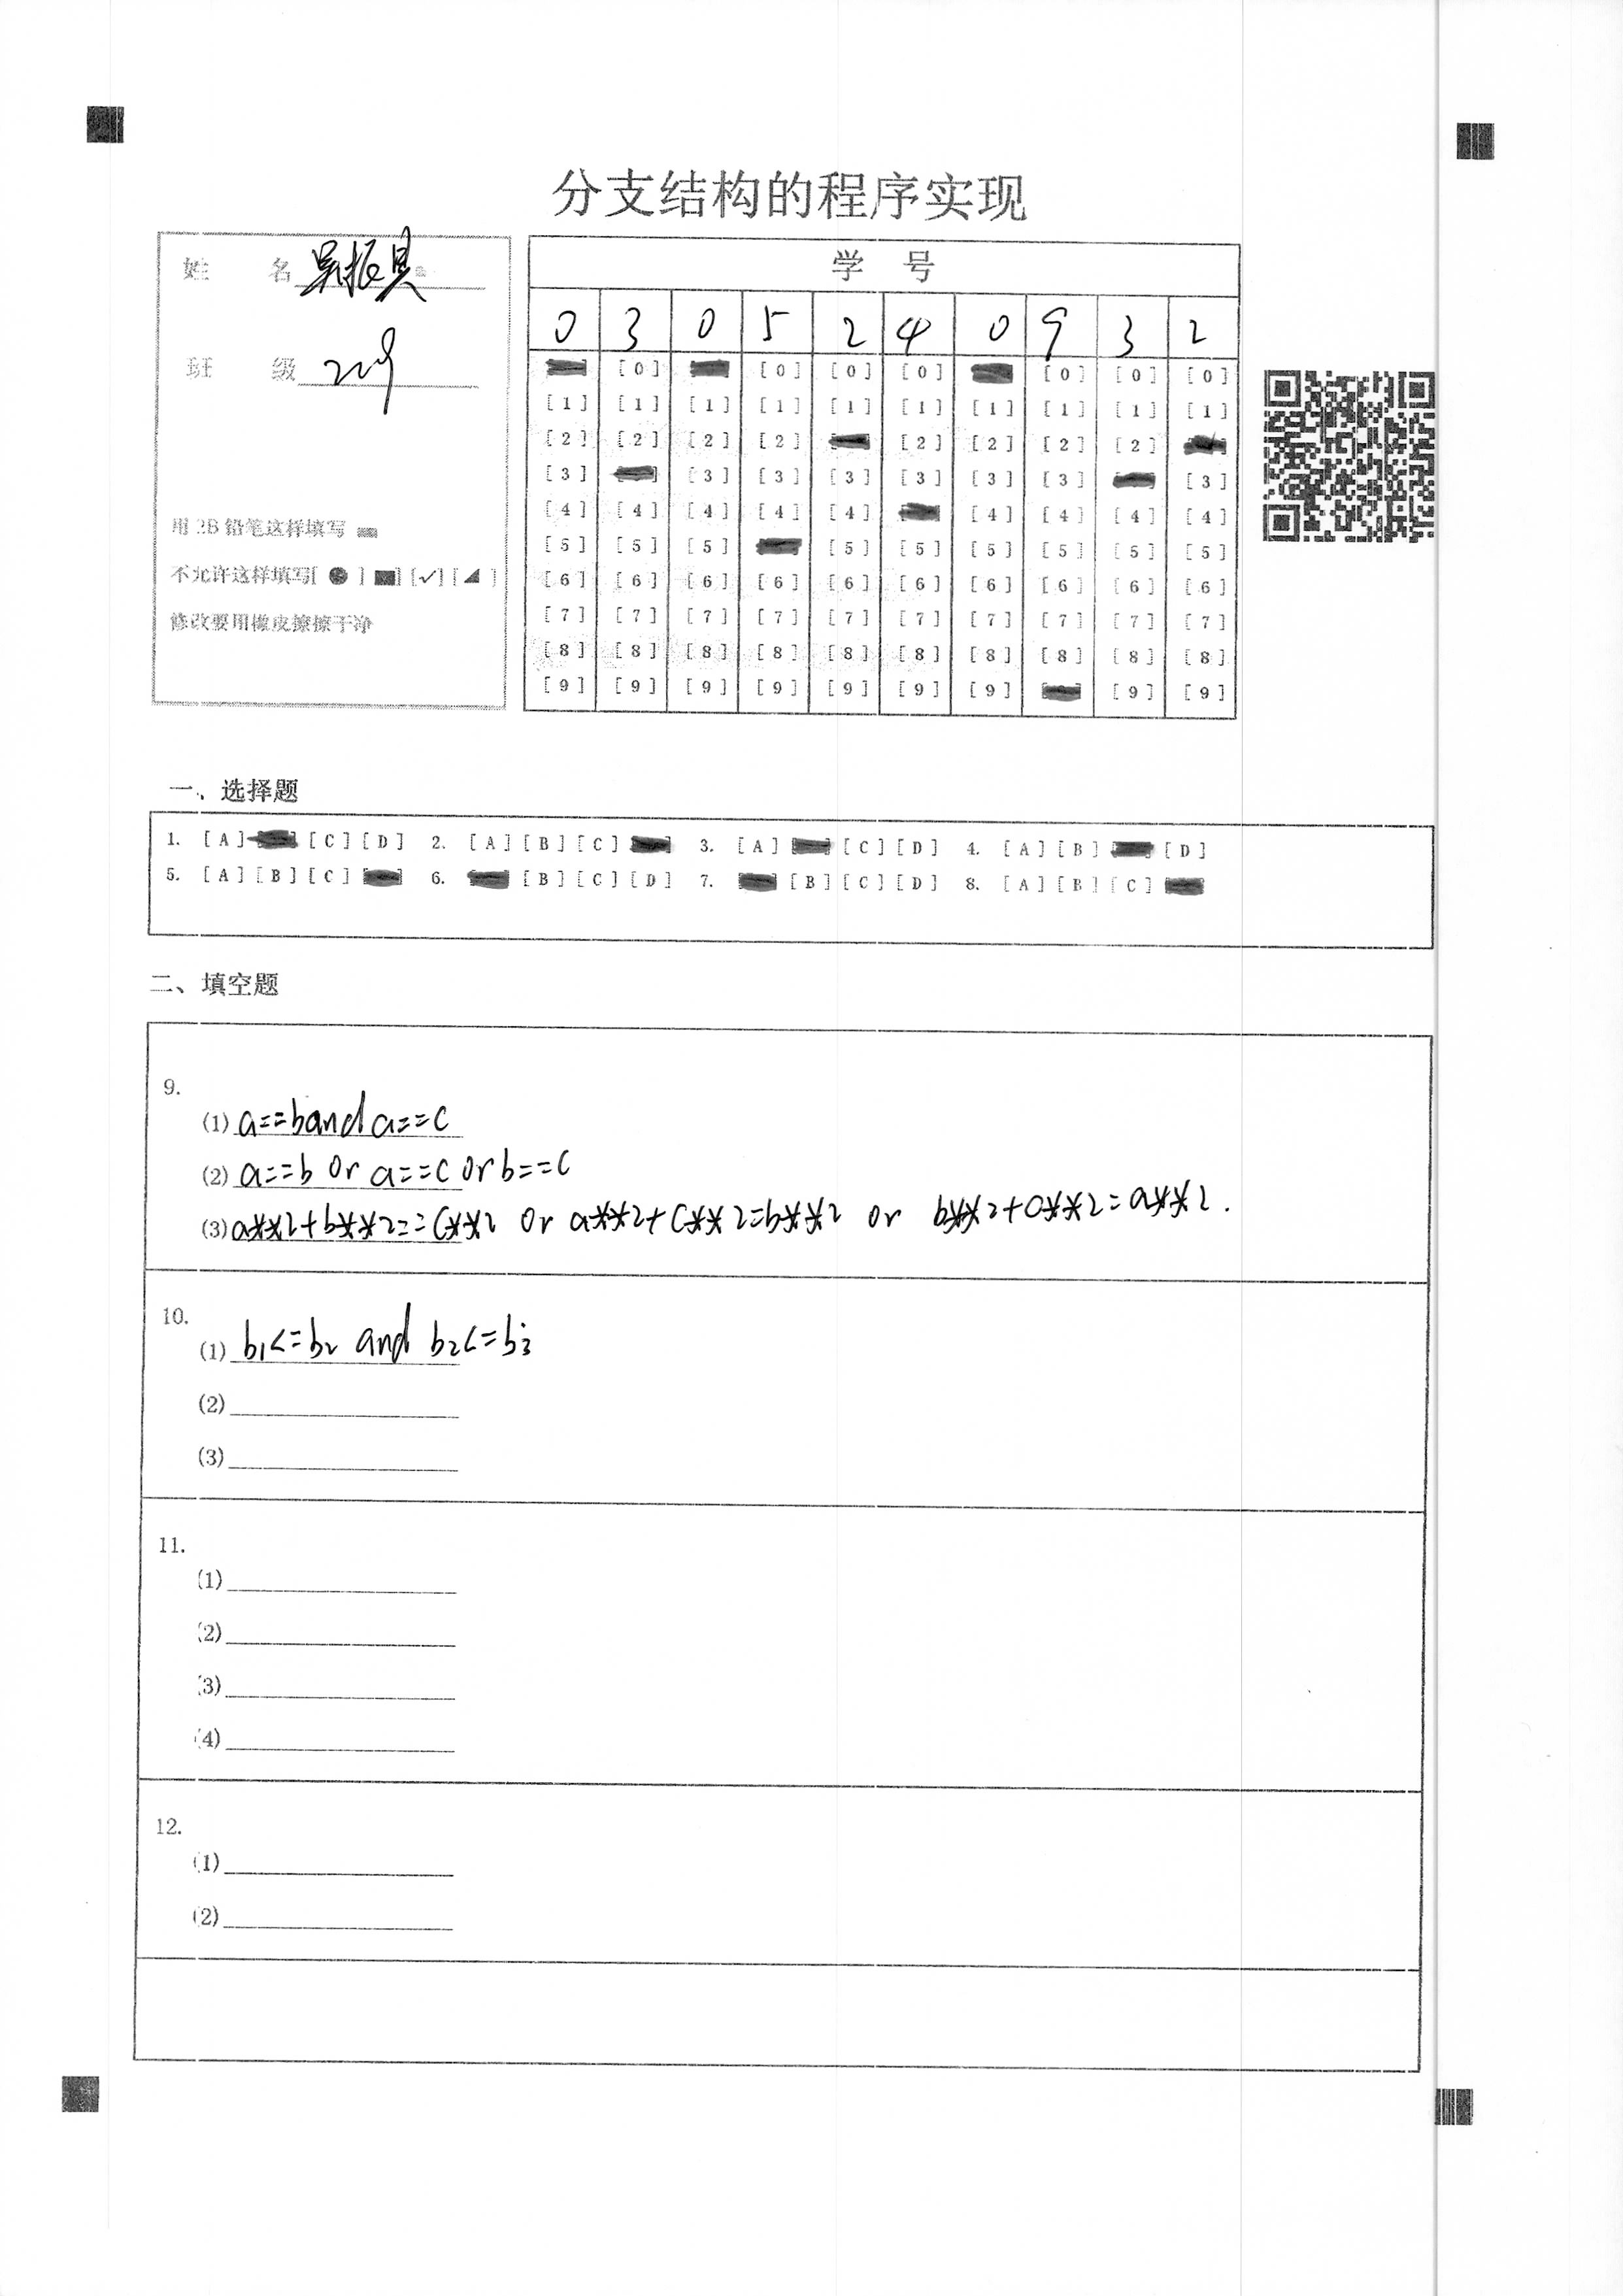 分支结构的程序实现
姓 名 吴振
班 级
用2B铅笔这样填写
不允许这样填写[ ● ] ■] [✓] [◢ ]
修改要用橡皮擦擦干净
学 号
0 3 0 5 2 4 0 9 3 2
[0] [0] [0] [0] [0] [0] [0]
[1] [1] [1] [1] [1] [1] [1] [1] [1] [1]
[2] [2] [2] [2] [2] [2] [2] [2]
[3] [3] [3] [3] [3] [3] [3] [3]
[4] [4] [4] [4] [4] [4] [4] [4] [4]
[5] [5] [5] [5] [5] [5] [5] [5] [5]
[6] [6] [6] [6] [6] [6] [6] [6] [6] [6]
[7] [7] [7] [7] [7] [7] [7] [7] [7] [7]
[8] [8] [8] [8] [8] [8] [8] [8] [8] [8]
[9] [9] [9] [9] [9] [9] [9] [9] [9]
一、选择题
1. [A] [C] [D] 2. [A] [B] [C] 3. [A] [C] [D] 4. [A] [B] [D]
5. [A] [B] [C] 6. [B] [C] [D] 7. [B] [C] [D] 8. [A] [B] [C]
二、填空题
9.
(1) a==b and a==c
(2) a==b or a==c or b==c
(3) a**2+b**2==c**2 or a**2+c**2=b**2 or b**2+c**2=a**2.
10.
(1) b1<=b2 and b2<=b3
(2)
(3)
11.
(1)
(2)
(3)
(4)
12.
(1)
(2)